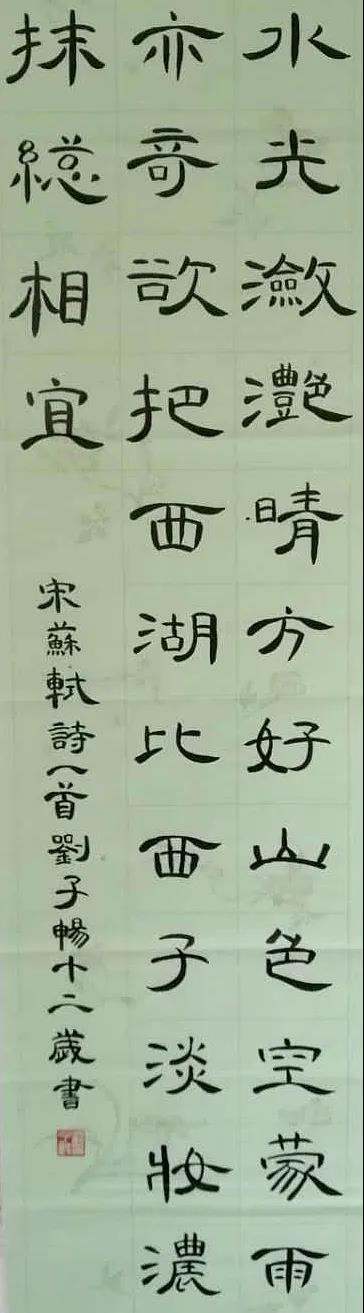 水光瀲灩晴方好山色空蒙雨
亦奇欲把西湖比西子淡妝濃
抹總相宜
宋蘇軾詩一首劉子暢十二歲書